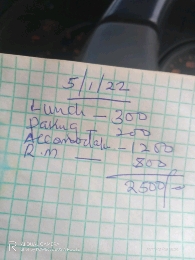 5/1/22
Lunch - 300
Paking 200
Accomodation - 1200
R.M - 800
2500/-